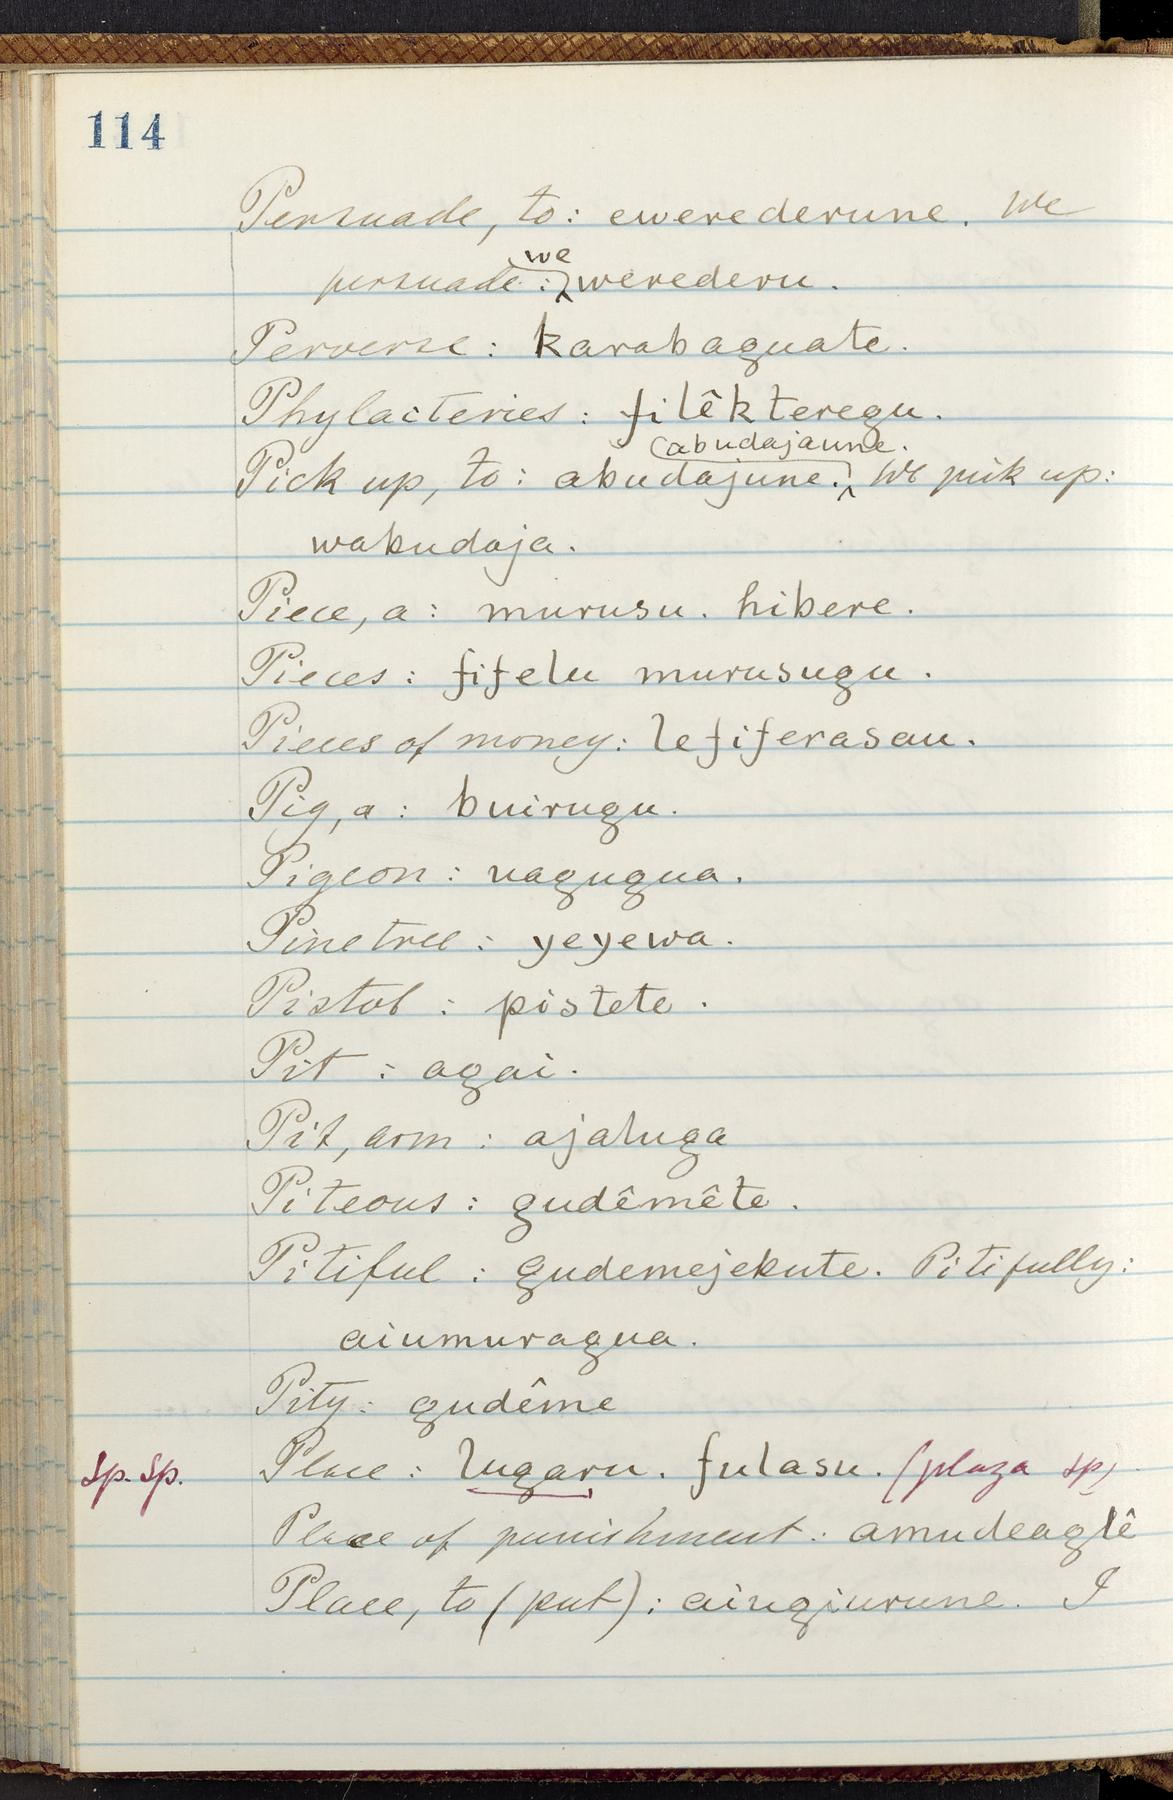 114
Persuade, to: ewerederune. We
we
persuade: werederu.
Perverse: karabaguate.
Phylacteries: filêkteregu.
(abudajaune.
Pick up, to: abudajune. We pick up:
wabudaja.
Piece, a: murusu. hibere.
Pieces: fifelu murusugu.
Pieces of money: lefiferasau.
Pig, a: buirugu.
Pigeon: uagugua.
Pine tree: yeyewa.
Pistol: pistete.
Pit: agai.
Pit, arm: ajaluga
Piteous: gudêmête.
Pitiful: gudemejebute. Pitifully:
aiumuragua.
Pity: gudême
Sp. Sp. Place: lugaru. fulasu. (plaza sp)
Place of punishment: amudeaglê
Place, to (put): aiugiurune. I